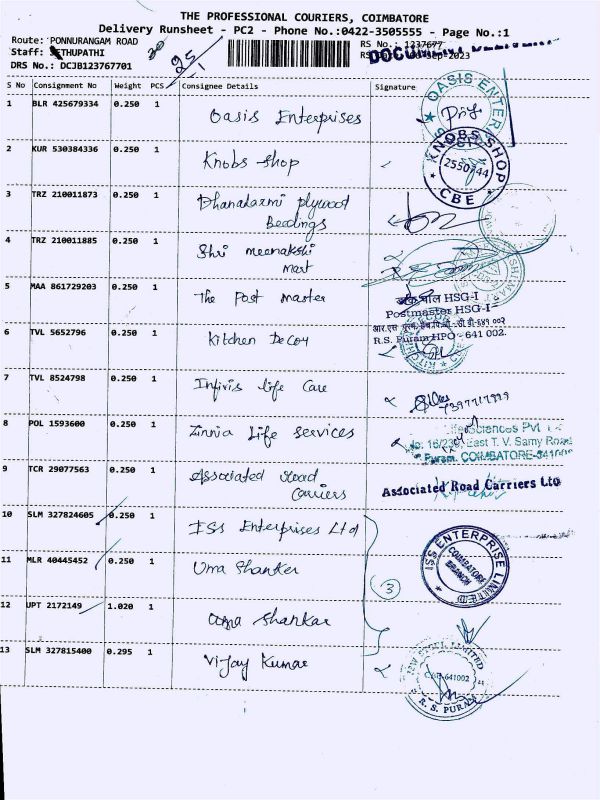 THE PROFESSIONAL COURIERS, COIMBATORE
Delivery Runsheet - PC2 - Phone No.:0422-3505555 - Page No.:1
Route: PONNURANGAM ROAD
RS No.: 1237677
Staff: SETHUPATHI
Sep-2023
DRS No.: DCJB123767701
S No Consignment No Weight PCS Consignee Details Signature
1 BLR 425679334 0.250 1 Oasis Enterprises
OASIS ENTER
2 KUR 530384336 0.250 1 Knobs shop
KNOBS SHOP
2550744
CBE
3 TRZ 210011873 0.250 1 Dhanalaxmi plywood
Beedings
4 TRZ 210011885 0.250 1 Shri meenakshi
mart
5 MAA 861729203 0.250 1 The Post Master
HSG-I
Postmaster HSG-I
R.S. Puram HPO - 641 002.
6 TVL 5652796 0.250 1 Kitchen Decoy
7 TVL 8524798 0.250 1 Infivis life Care
8 POL 1593600 0.250 1 Zinnia Life Services
LifeSciences Pvt
East T. V. Samy Road
Puram. COIMBATORE-641002
9 TCR 29077563 0.250 1 Associated Road
Carriers
Associated Road Carriers Ltd
10 SLM 327824605 0.250 1 ISS Enterprises Ltd
ISS ENTERPRISE LIMITED
COIMBATORE
BRANCH
11 MLR 40445452 0.250 1 Uma Shanker
3
12 UPT 2172149 1.020 1 Uma Shankar
13 SLM 327815400 0.295 1 Vijay Kumar
LIMITED
CBE-641002
R. S. PURAM